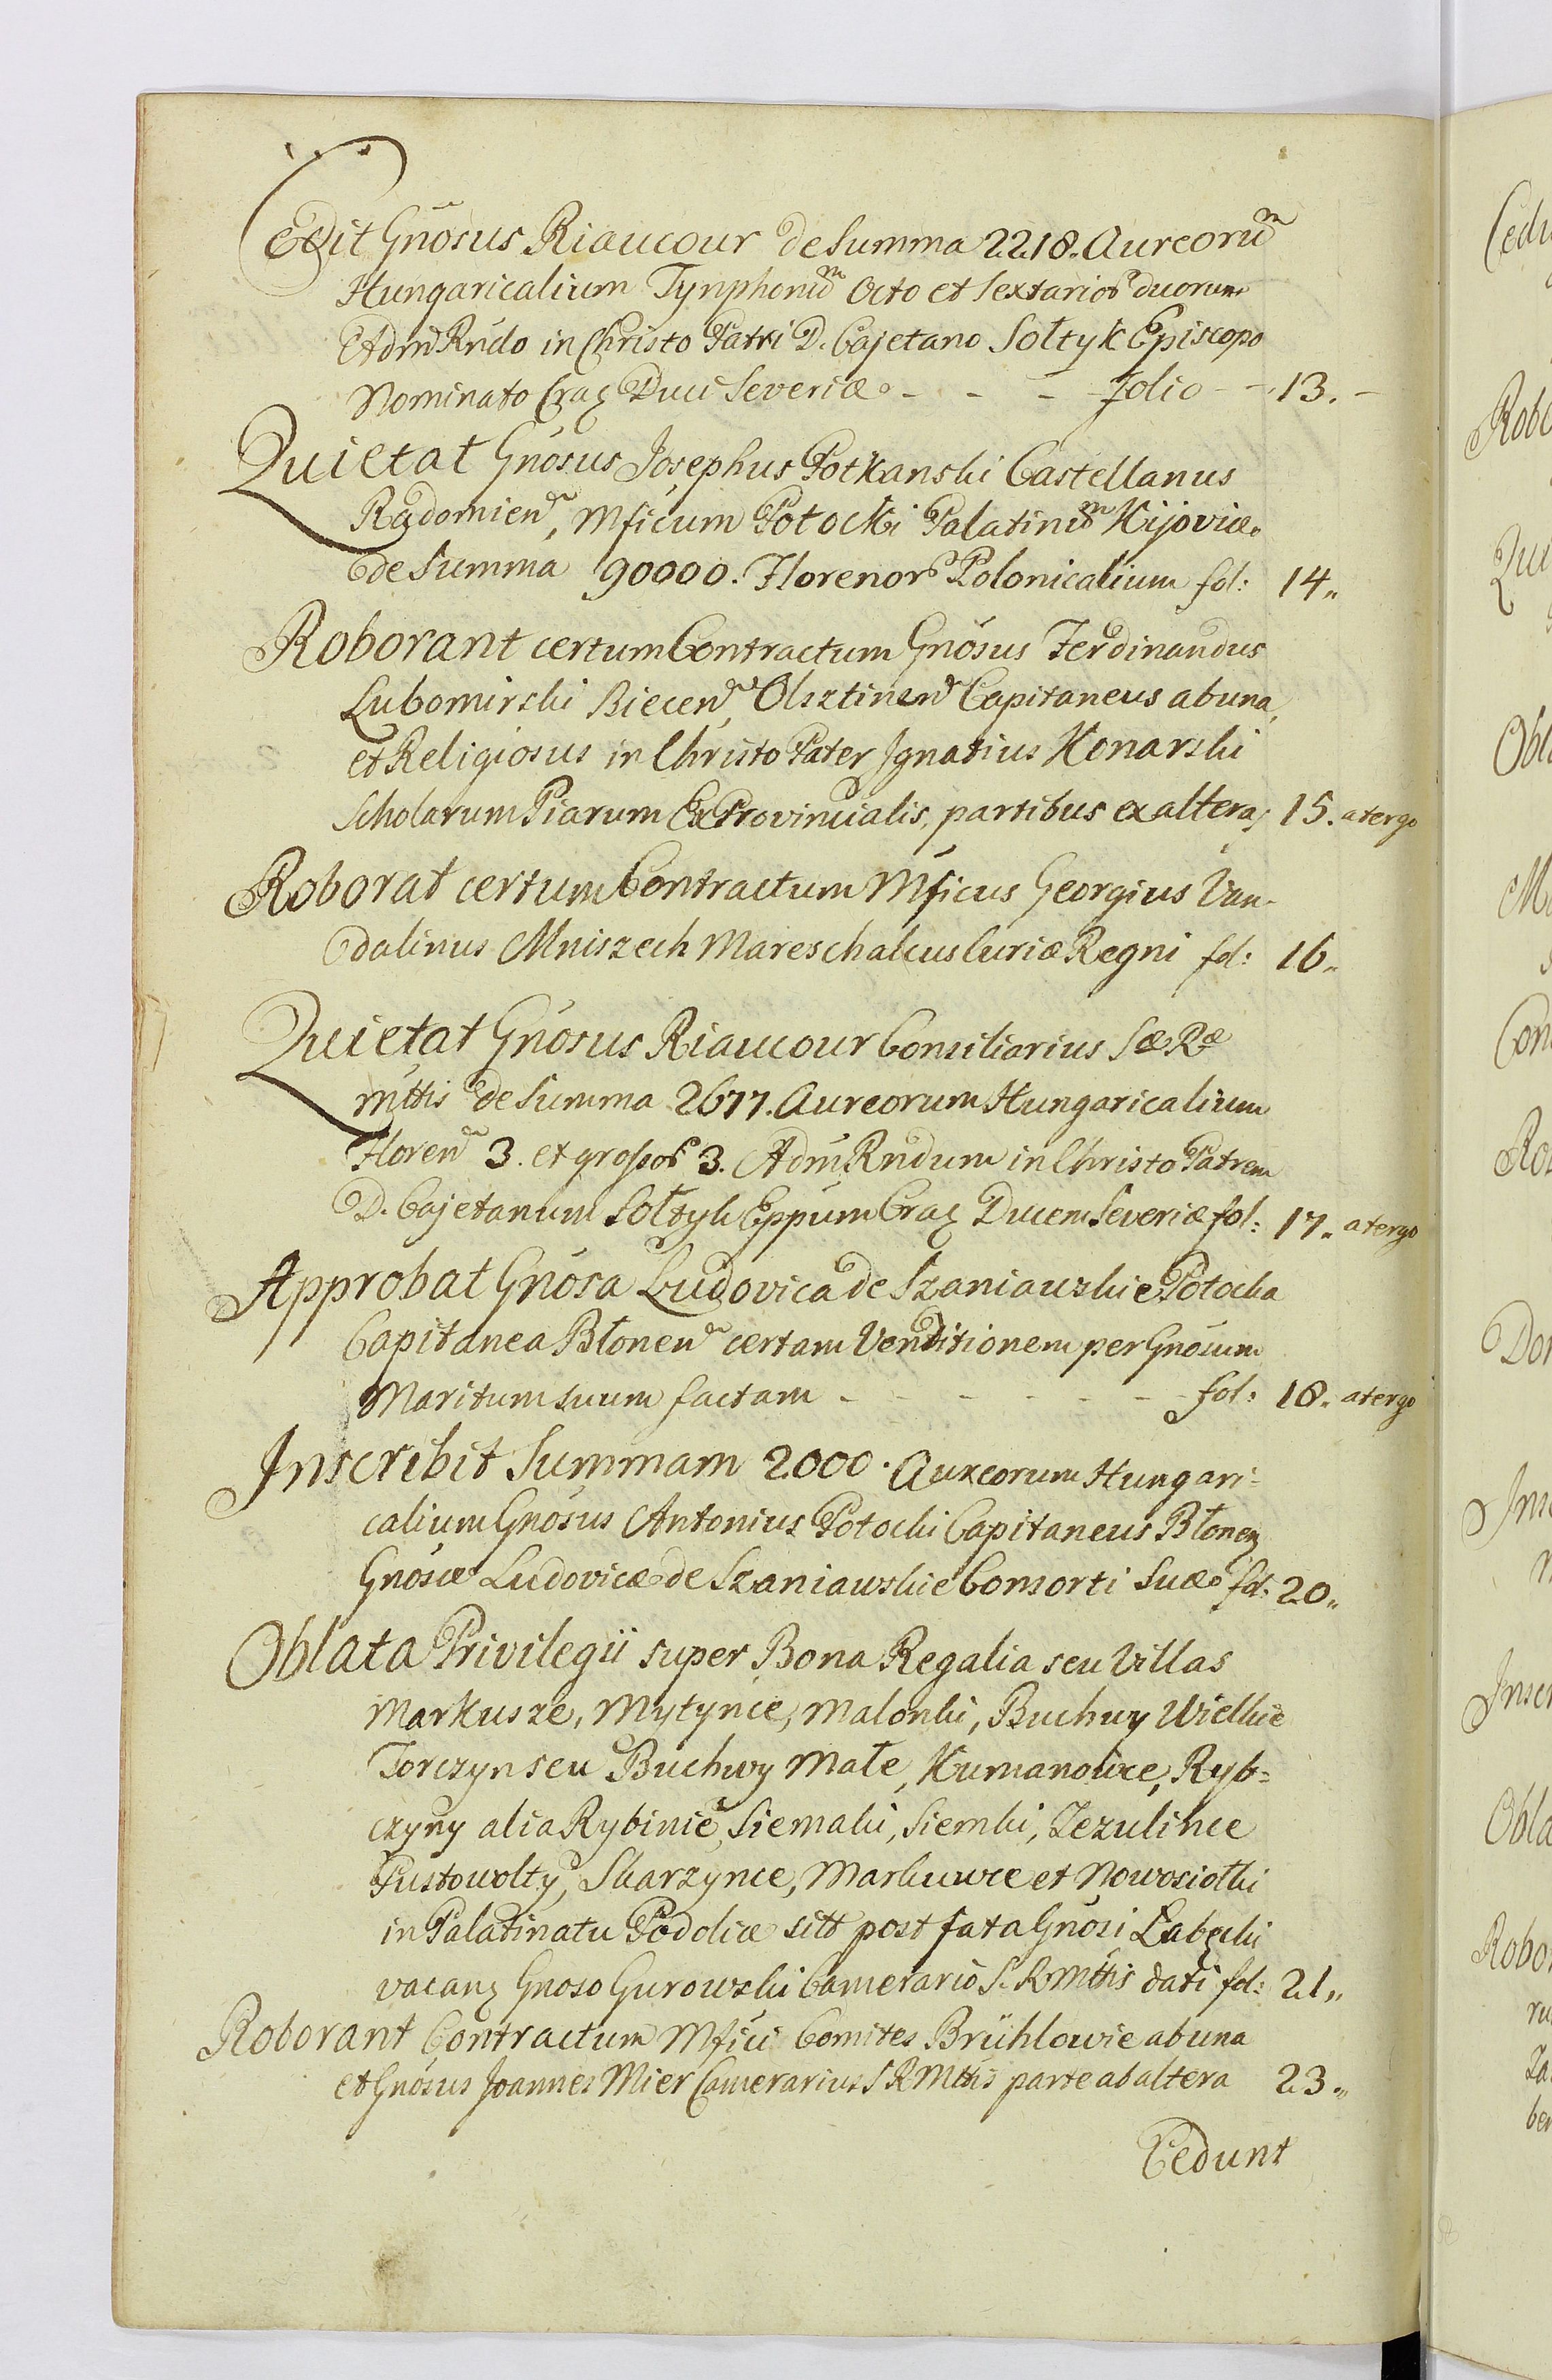 Cedit Gnosus Riaucour de Summa 2218. Aureorum
Hungaricalium Tynphonum Octo et Sextarior duorum
Adm Rndo in Christo Patri D. Cajetano Sołtyk Episcopo
Nominato Crac Duci Severiæ - - - folio - - 13. -
Quietat Gnosus Josephus Potkanski Castellanus
Radomien, Mficum Potocki Palatinum Kijoviæ
de Summa 90000. Florenor Polonicalium fol: 14.
Roborant certum Contractum Gnosus Ferdinandus
Lubomirski Biecen, Olsztinen Capitaneus ab una,
et Religiosus in Christo Pater Ignatius Konarski
Scholarum Piarum Ex Provincialis, partibus ex altera, 15. a tergo
Roborat certum Contractum Mficus Georgius Van-
dalinus Mniszech Mareschalcus Curiæ Regni fol: 16.
Quietat Gnosus Riaucour Consiliarius Sæ Ræ
Mttis de Summa 2677. Aureorum Hungaricalium
Floren 3. et grossor 3. Adm Rndum in Christo Patrem
D. Cajetanum Sołtyk Eppum Crac Ducem Severiæ fol: 17. a tergo
Approbat Gnosa Ludovica de Szaniawskie Potocka
Capitanea Błonen certam Venditionem per Gnosum
Maritum suum factam - - - - - - fol: 18. a tergo
Inscribit Summam 2000. Aureorum Hungari-
calium Gnosus Antonius Potocki Capitaneus Błonen
Gnosæ Ludovicæ de Szaniawskie Consorti Suæ fol: 20.
Oblata Privilegii super Bona Regalia seu Villas
Markusze, Mytynce, Malonki, Buchwy Wielkie
Torczyn seu Buchwy Małe, Kumanowce, Ryb-
czyny alia Rybinie, Siemaki, Siemki, Zezulince
Pustowołty, Skarzynce, Markuwce et Nowosiołki
in Palatinatu Podoliæ sitt post fata Gnosi Łabęcki
vacan Gnoso Gurowski Camerario S. R Mttis dati fol: 21.
Roborant Contractum Mfici Comites Brühlowie ab una
et Gnosus Joannes Mier Camerarius S R Mttis parte ab altera 23.
Cedunt